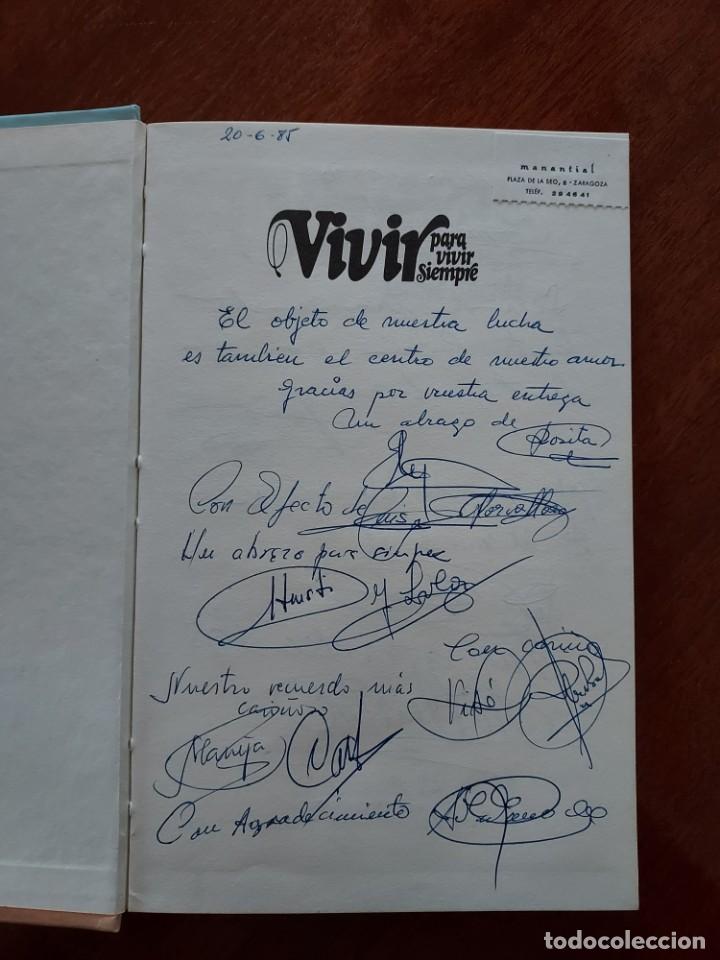 20-6-85
manantial
PLAZA DE LA SEO, 6 - ZARAGOZA
TELÉF. 294641
Vivir
para
vivir
siempre
El objeto de nuestra lucha
es tambien el centro de nuestro amor.
Gracias por vuestra entrega
Un abrazo de Rosita
Con Afecto de Luis
Un abrazo para siempre
y
Con cariño
Nuestro recuerdo más
cariñoso
Maruja
Con Agradecimiento
todocoleccion